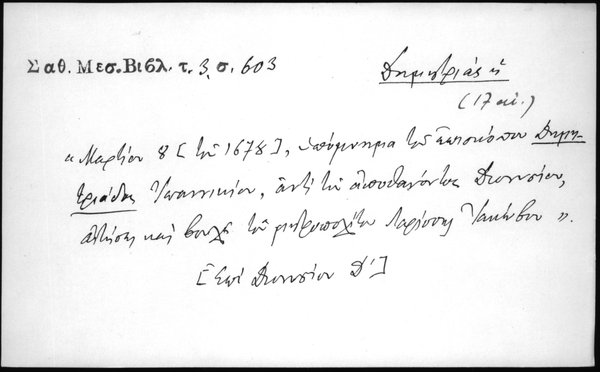 Σαθ. Μεσ. Βιβλ. τ. 3, σ. 603
Δημητριάς ἡ
(17 αἰ.)
« Μαρτίου 8 [τοῦ 1678], ὑπόμνημα τοῦ ἐπισκόπου Δημη-
τριάδος Ἰωαννικίου, ἀντὶ τοῦ ἀποθανόντος Διονυσίου,
αἰτήσει καὶ βουλῇ τοῦ μητροπολίτου Λαρίσσης Ἰακώβου ».
[Ἐπὶ Διονυσίου Δ']